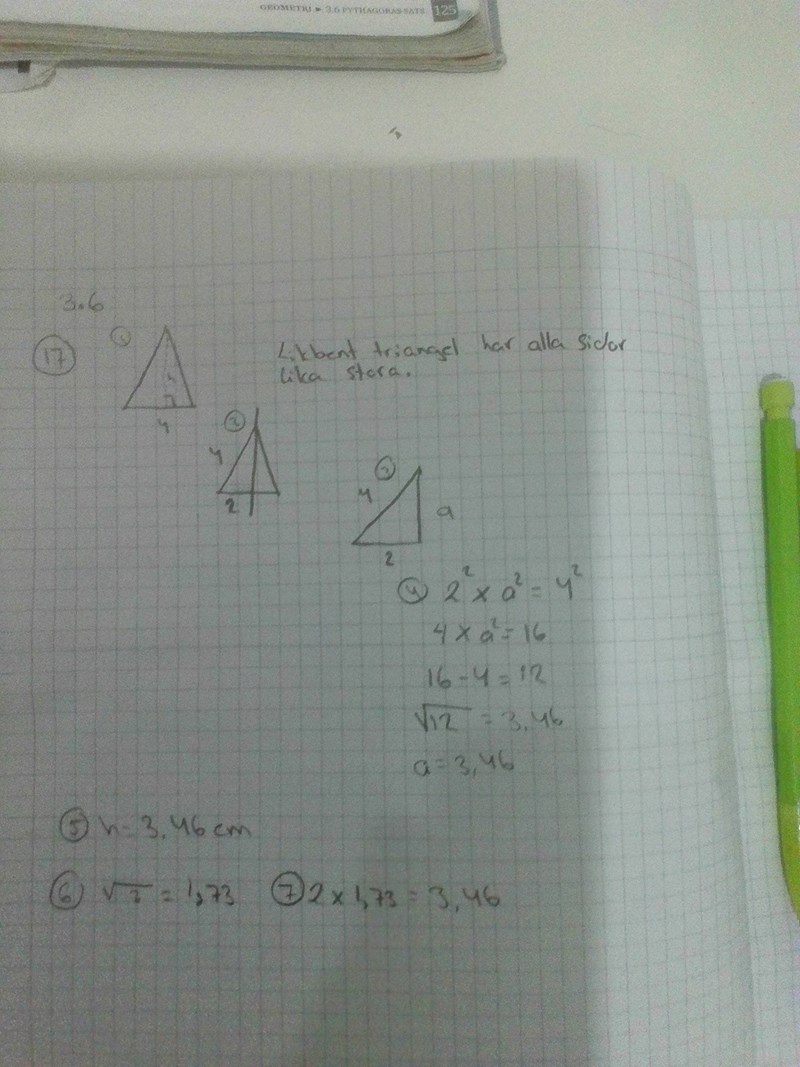 GEOMETRI ► 3.6 PYTHAGORAS SATS 125
3.6
17
1
Likbent triangel har alla sidor
lika stora.
4
2
4
2
3
4
a
2
4 2² x a² = 4²
4 x a² = 16
16 - 4 = 12
√12 = 3.46
a = 3,46
5 h = 3.46 cm
6 √3 = 1,73 7 2 x 1,73 = 3,46